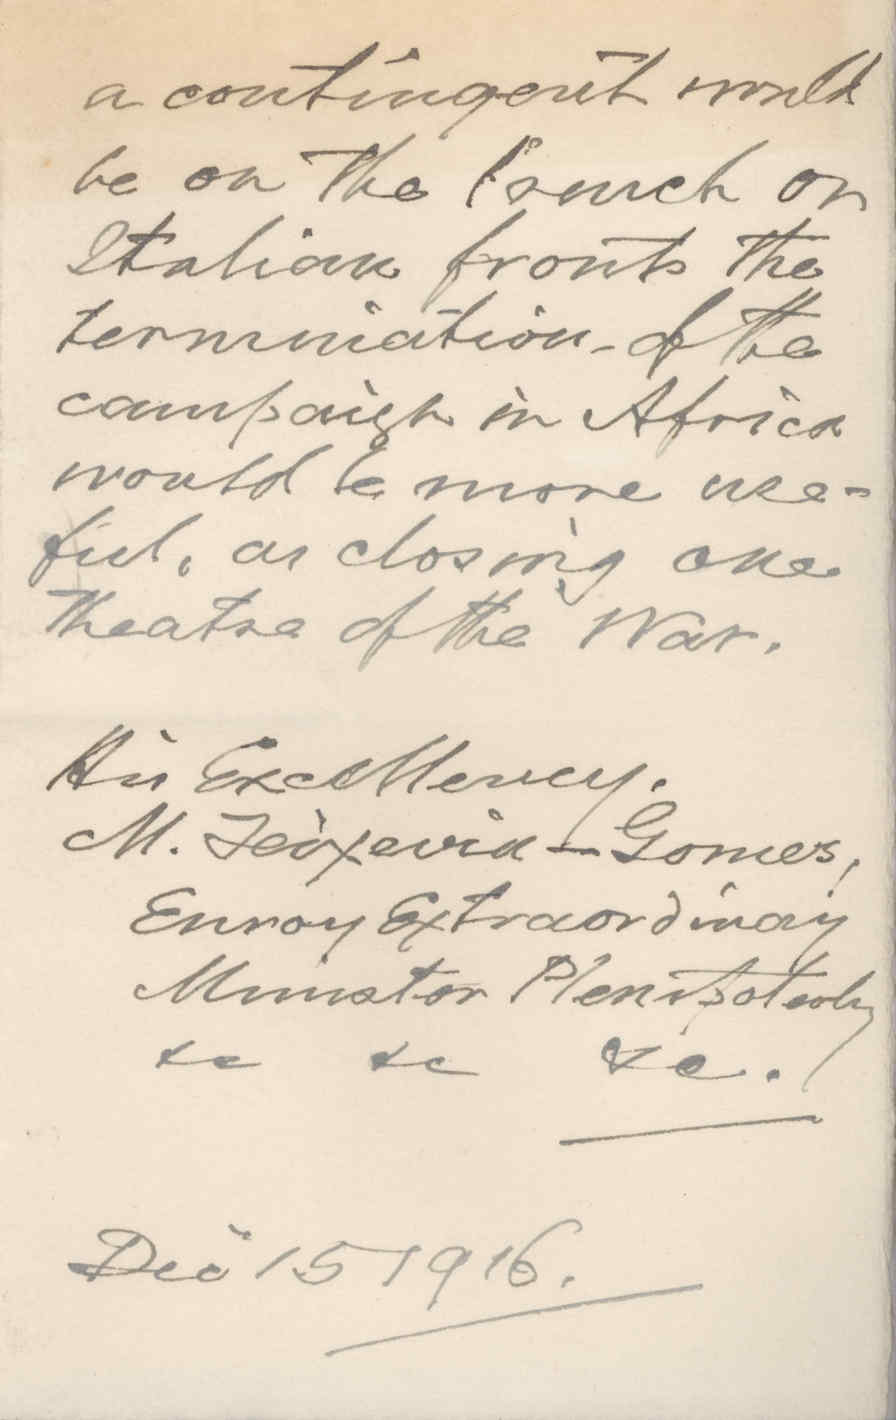 a contingent would
be on the French or
Italian fronts the
termination of the
campaign in Africa
would be more use-
ful, as closing one
theatre of the War.
His Excellency.
M. Teixeira-Gomes,
Envoy Extraordinary
Minister Plenipotentiary
&c &c &c.
Dec 15 1916.